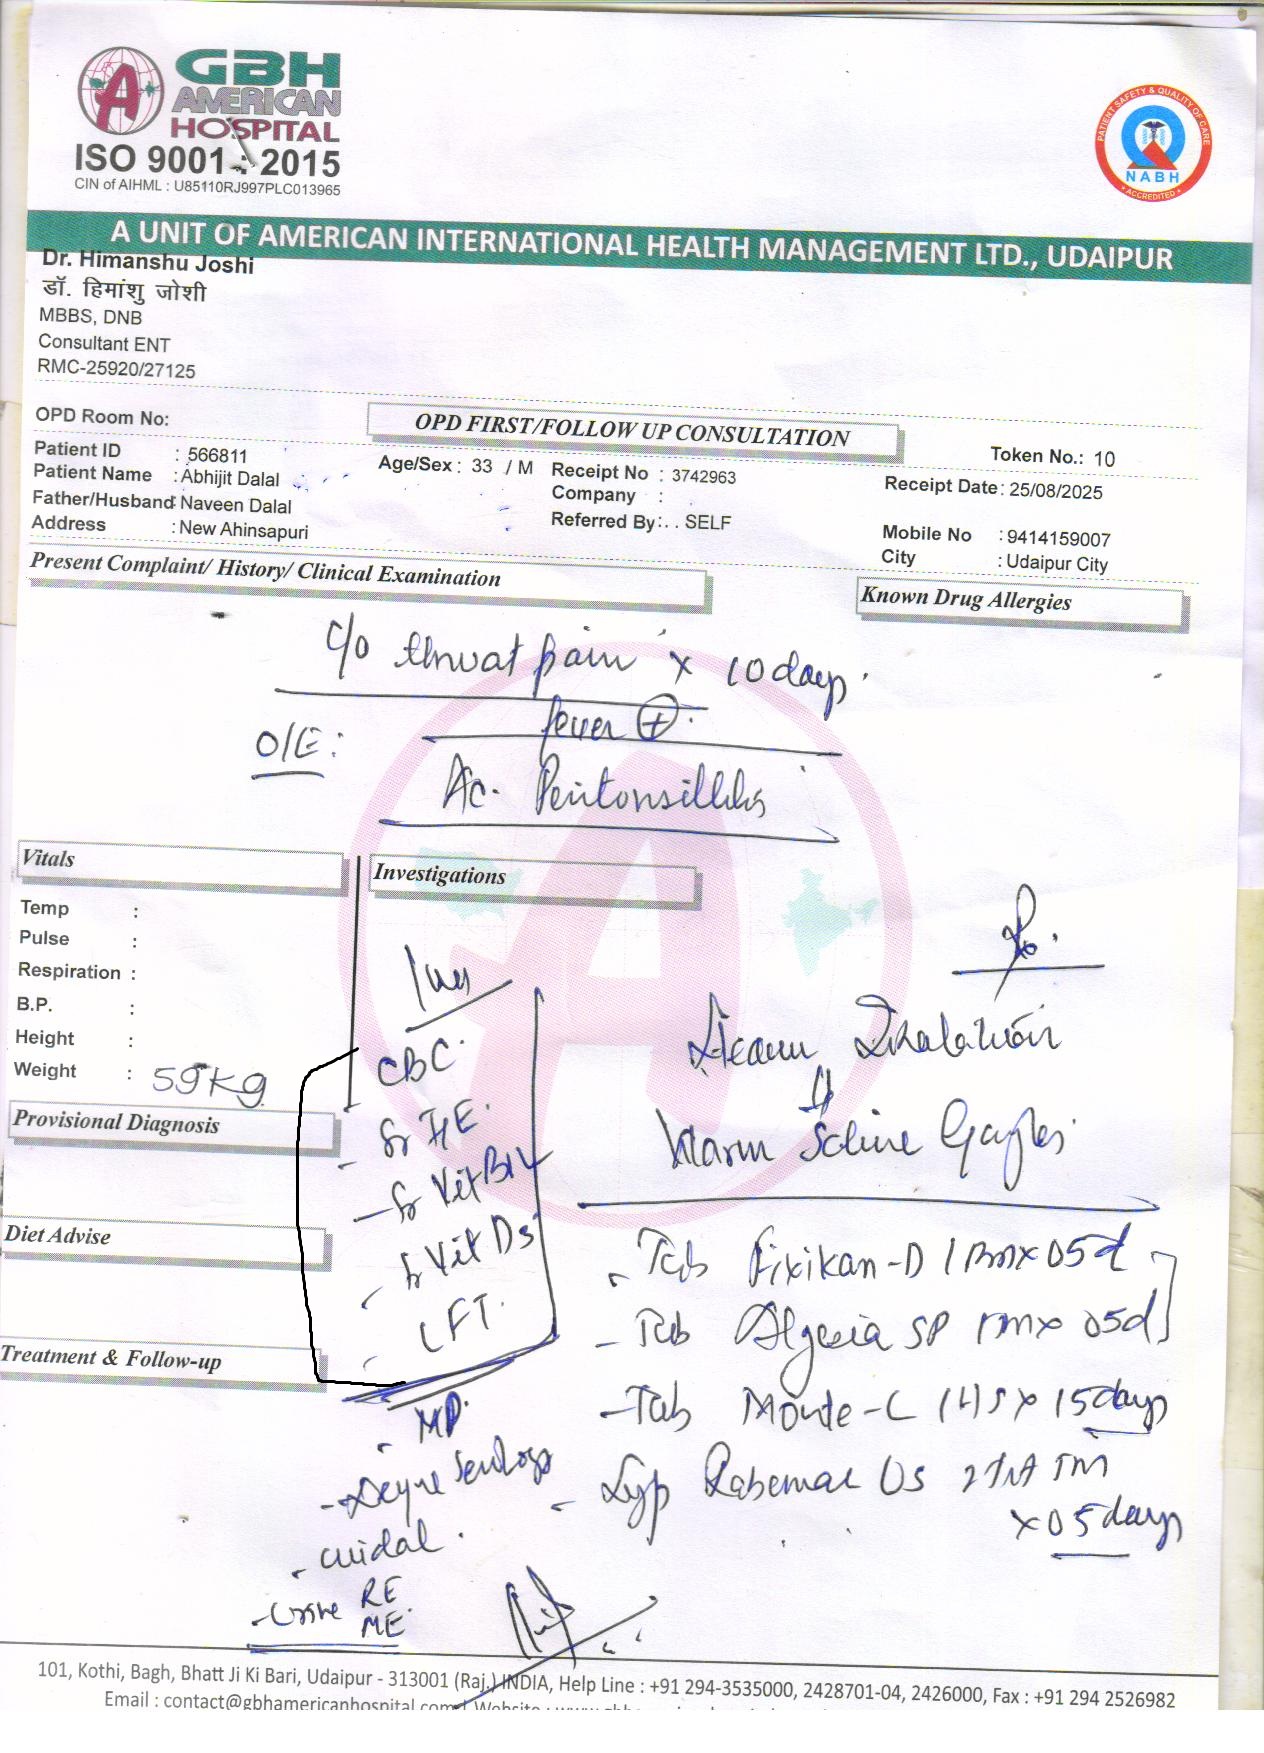 GBH
AMERICAN
HOSPITAL
ISO 9001 : 2015
CIN of AIHML : U85110RJ997PLC013965
PATIENT SAFETY & QUALITY OF CARE
NABH
ACCREDITED
A UNIT OF AMERICAN INTERNATIONAL HEALTH MANAGEMENT LTD., UDAIPUR
Dr. Himanshu Joshi
डॉ. हिमांशु जोशी
MBBS, DNB
Consultant ENT
RMC-25920/27125
OPD Room No:
OPD FIRST/FOLLOW UP CONSULTATION
Token No.: 10
Patient ID : 566811
Patient Name : Abhijit Dalal
Age/Sex : 33 / M
Receipt No : 3742963
Receipt Date : 25/08/2025
Father/Husband : Naveen Dalal
Company :
Address : New Ahinsapuri
Referred By : . . SELF
Mobile No : 9414159007
City : Udaipur City
Present Complaint/ History/ Clinical Examination
Known Drug Allergies
C/o throat pain x 10 days.
fever +
O/E :
Ac.
Vitals
Investigations
Temp :
Pulse :
Respiration :
B.P. :
Height :
Weight : 59 Kg
Provisional Diagnosis
Diet Advise
Treatment & Follow-up
Inv
CBC
- Sr IgE
- Sr Vit B12
- Sr Vit D3
- LFT
- MP
- Urine RE
ME
Steam Inhalation
Warm Saline Gargles
- Tab Fixikan-D 1 x 05d
- Tab SP x 05d
- Tab Monte-C 1 HS x 15 days
- Syp
x 05 days
101, Kothi, Bagh, Bhatt Ji Ki Bari, Udaipur - 313001 (Raj.) INDIA, Help Line : +91 294-3535000, 2428701-04, 2426000, Fax : +91 294 2526982
Email : contact@gbhamericanhospital.com